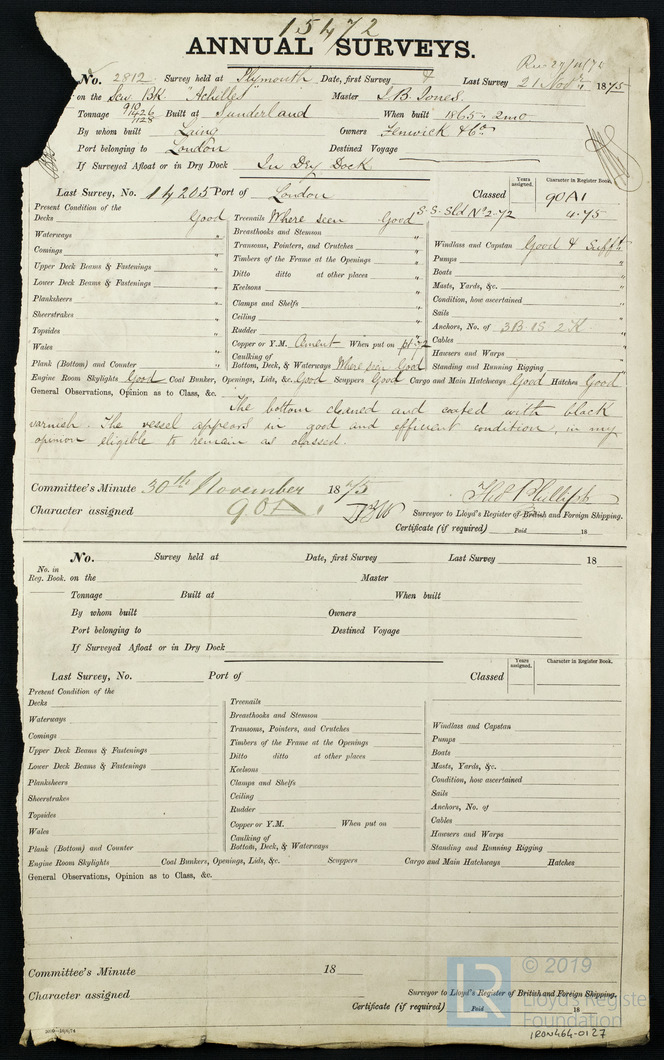 15472
ANNUAL SURVEYS.
No. 2812 Survey held at Plymouth Date, first Survey & Last Survey 21 Novr 1875
on the Scw BK "Achilles" Master I. B. Jones.
Tonnage 910 1426 1128 Built at Sunderland When built 1865 - 2mo
By whom built Laing Owners Fenwick & Co
Port belonging to London Destined Voyage
If Surveyed Afloat or in Dry Dock In Dry Dock
Last Survey, No. 14205 Port of London Classed Years assigned. Character in Register Book. 90A1
S.S. Sld No 2-72 4.75
Present Condition of the
Decks Good Treenails Where seen Good
Waterways " Breasthooks and Stemson "
Comings " Transoms, Pointers, and Crutches " Windlass and Capstan Good & Sufft
Upper Deck Beams & Fastenings " Timbers of the Frame at the Openings " Pumps "
Lower Deck Beams & Fastenings " Ditto ditto at other places " Boats "
Planksheers " Keelsons " Masts, Yards, &c. "
Sheerstrakes " Clamps and Shelfs " Condition, how ascertained "
Topsides " Ceiling " Sails "
Wales " Rudder " Anchors, No. of 3B 1S 2K "
Plank (Bottom) and Counter " Copper or Y.M. Cement When put on pt 72 Cables "
Caulking of Bottom, Deck, & Waterways Where seen Good Hawsers and Warps "
Standing and Running Rigging "
Engine Room Skylights Good Coal Bunker, Openings, Lids, &c. Good Scuppers Good Cargo and Main Hatchways Good Hatches Good
General Observations, Opinion as to Class, &c.
The bottom cleaned and coated with black
varnish. The vessel appears in good and efficient condition, in my
opinion eligible to remain as classed.
Committee's Minute 30th November 1875
Character assigned 90A1
Thos Phillips
Surveyor to Lloyd's Register of British and Foreign Shipping.
Certificate (if required) Paid 18
No. Survey held at Date, first Survey Last Survey 18
No. in Reg. Book. on the Master
Tonnage Built at When built
By whom built Owners
Port belonging to Destined Voyage
If Surveyed Afloat or in Dry Dock
Last Survey, No. Port of Classed Years assigned. Character in Register Book.
Present Condition of the
Decks Treenails
Waterways Breasthooks and Stemson
Comings Transoms, Pointers, and Crutches Windlass and Capstan
Upper Deck Beams & Fastenings Timbers of the Frame at the Openings Pumps
Lower Deck Beams & Fastenings Ditto ditto at other places Boats
Planksheers Keelsons Masts, Yards, &c.
Sheerstrakes Clamps and Shelfs Condition, how ascertained
Topsides Ceiling Sails
Wales Rudder Anchors, No. of
Plank (Bottom) and Counter Copper or Y.M. When put on Cables
Caulking of Bottom, Deck, & Waterways Hawsers and Warps
Standing and Running Rigging
Engine Room Skylights Coal Bunkers, Openings, Lids, &c. Scuppers Cargo and Main Hatchways Hatches
General Observations, Opinion as to Class, &c.
Committee's Minute 18
Character assigned
Surveyor to Lloyd's Register of British and Foreign Shipping.
Certificate (if required) Paid 18
LR © 2019
Lloyd's Registe
Foundation
IRON464-0127